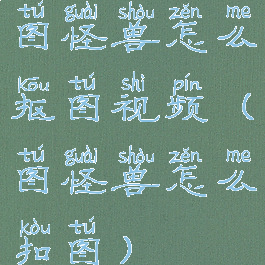 tú guài shòu zěn me
图怪兽怎么
kōu tú shì pín
抠图视频（
tú guài shòu zěn me
图怪兽怎么
kòu tú
扣图）